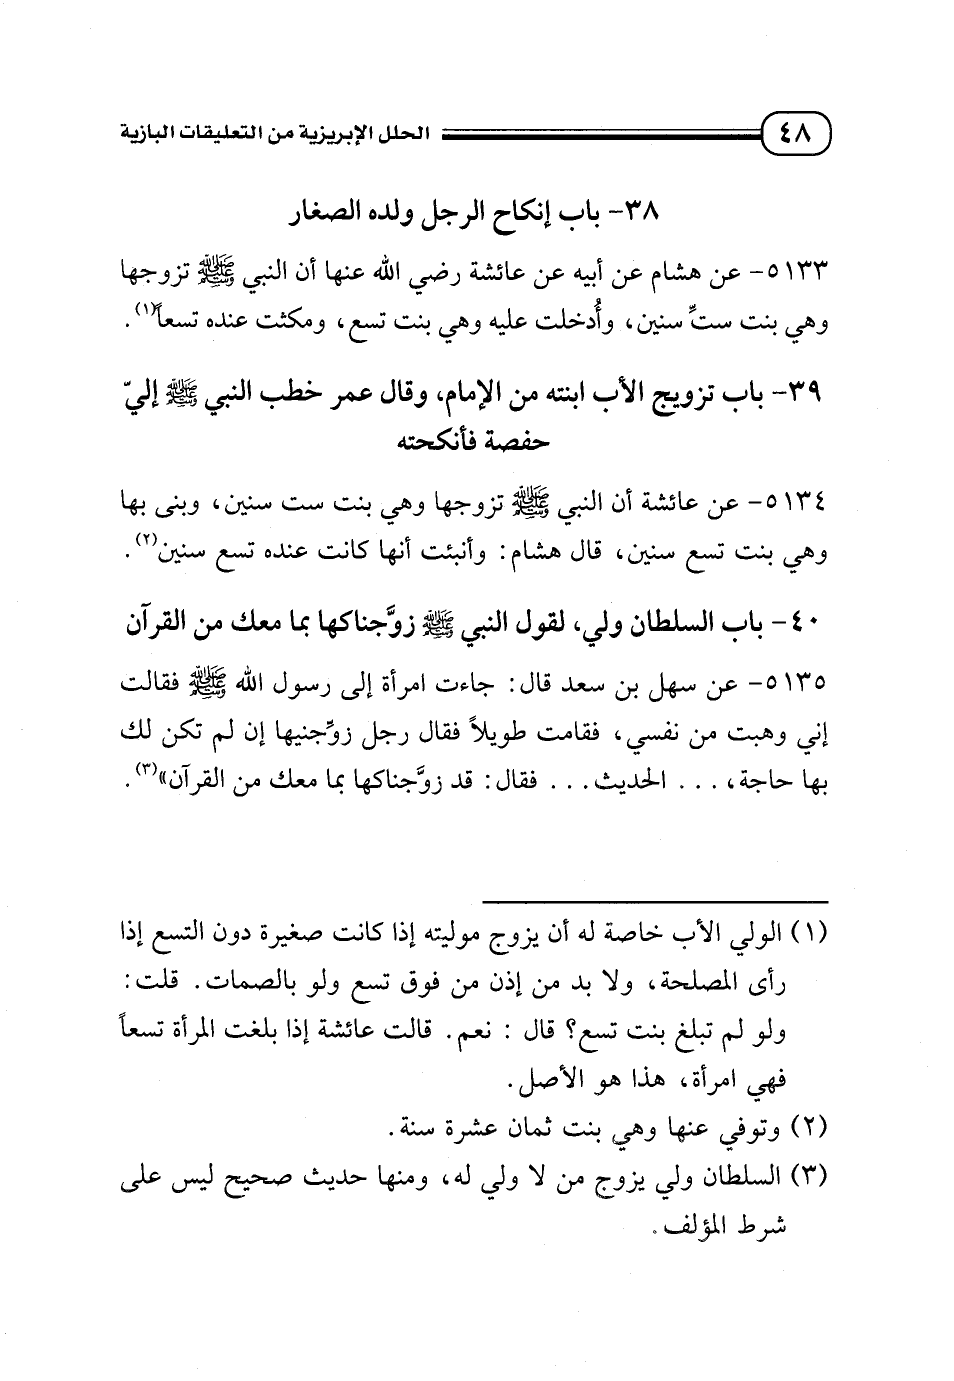 ٤٨ الحلل الإبريزية من التعليقات البازية
٣٨- باب إنكاح الرجل ولده الصغار
٥١٣٣- عن هشام عن أبيه عن عائشة رضي الله عنها أن النبي ﷺ تزوجها
وهي بنت ستِّ سنين، وأُدخلت عليه وهي بنت تسع، ومكثت عنده تسعاً(١).
٣٩- باب تزويج الأب ابنته من الإمام، وقال عمر خطب النبي ﷺ إليّ
حفصة فأنكحته
٥١٣٤- عن عائشة أن النبي ﷺ تزوجها وهي بنت ست سنين، وبنى بها
وهي بنت تسع سنين، قال هشام: وأنبئت أنها كانت عنده تسع سنين(٢).
٤٠- باب السلطان ولي، لقول النبي ﷺ زوَّجناكها بما معك من القرآن
٥١٣٥- عن سهل بن سعد قال: جاءت امرأة إلى رسول الله ﷺ فقالت
إني وهبت من نفسي، فقامت طويلاً فقال رجل زوِّجنيها إن لم تكن لك
بها حاجة، ... الحديث ... فقال: قد زوَّجناكها بما معك من القرآن»(٣).
(١) الولي الأب خاصة له أن يزوج موليته إذا كانت صغيرة دون التسع إذا
رأى المصلحة، ولا بد من إذن من فوق تسع ولو بالصمات. قلت:
ولو لم تبلغ بنت تسع؟ قال : نعم. قالت عائشة إذا بلغت المرأة تسعاً
فهي امرأة، هذا هو الأصل.
(٢) وتوفي عنها وهي بنت ثمان عشرة سنة.
(٣) السلطان ولي يزوج من لا ولي له، ومنها حديث صحيح ليس على
شرط المؤلف.